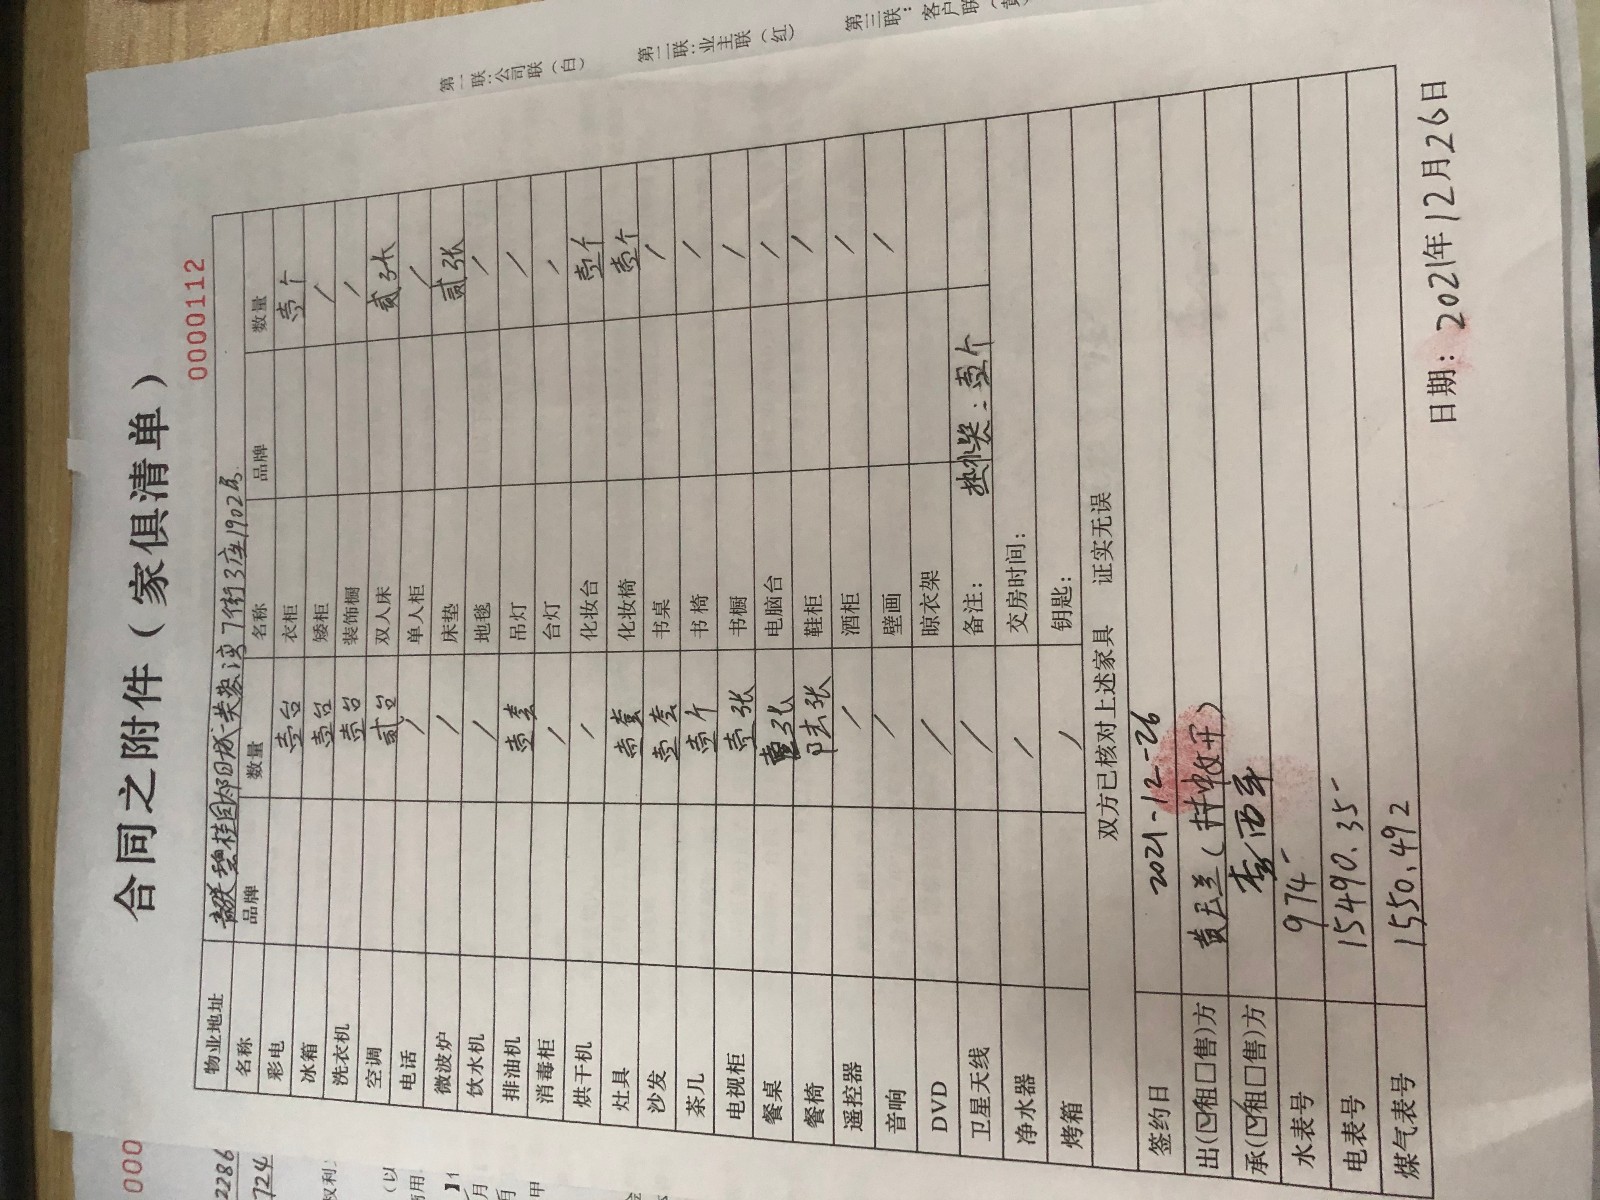 第一联:公司联(白)
第二联:业主联(红)
第三联:客户联
合同之附件(家俱清单)
0000112
物业地址 碧桂园太阳城芙蓉湾7街3座1902房
名称 品牌 数量 名称 品牌 数量
彩电 壹台 衣柜 壹个
冰箱 壹台 矮柜 /
洗衣机 壹台 装饰橱 /
空调 贰台 双人床 贰张
电话 / 单人柜 /
微波炉 / 床垫 贰张
饮水机 / 地毯 /
排油机 壹套 吊灯 /
消毒柜 / 台灯 /
烘干机 / 化妆台 壹个
灶具 壹套 化妆椅 壹个
沙发 壹套 书桌 /
茶几 壹个 书椅 /
电视柜 壹张 书橱 /
餐桌 壹张 电脑台 /
餐椅 陆张 鞋柜 /
遥控器 / 酒柜 /
音响 / 壁画 /
DVD / 晾衣架
卫星天线 / 备注: 热水器:壹个
净水器 / 交房时间:
烤箱 / 钥匙:
双方已核对上述家具 证实无误
签约日 2021-12-26
出(☑租□售)方 黄云兰
承(☑租□售)方 李
水表号 974
电表号 15490.35
煤气表号 1550.492
日期: 2021年12月26日
000
2286
7724
权利
(以
用
月
甲